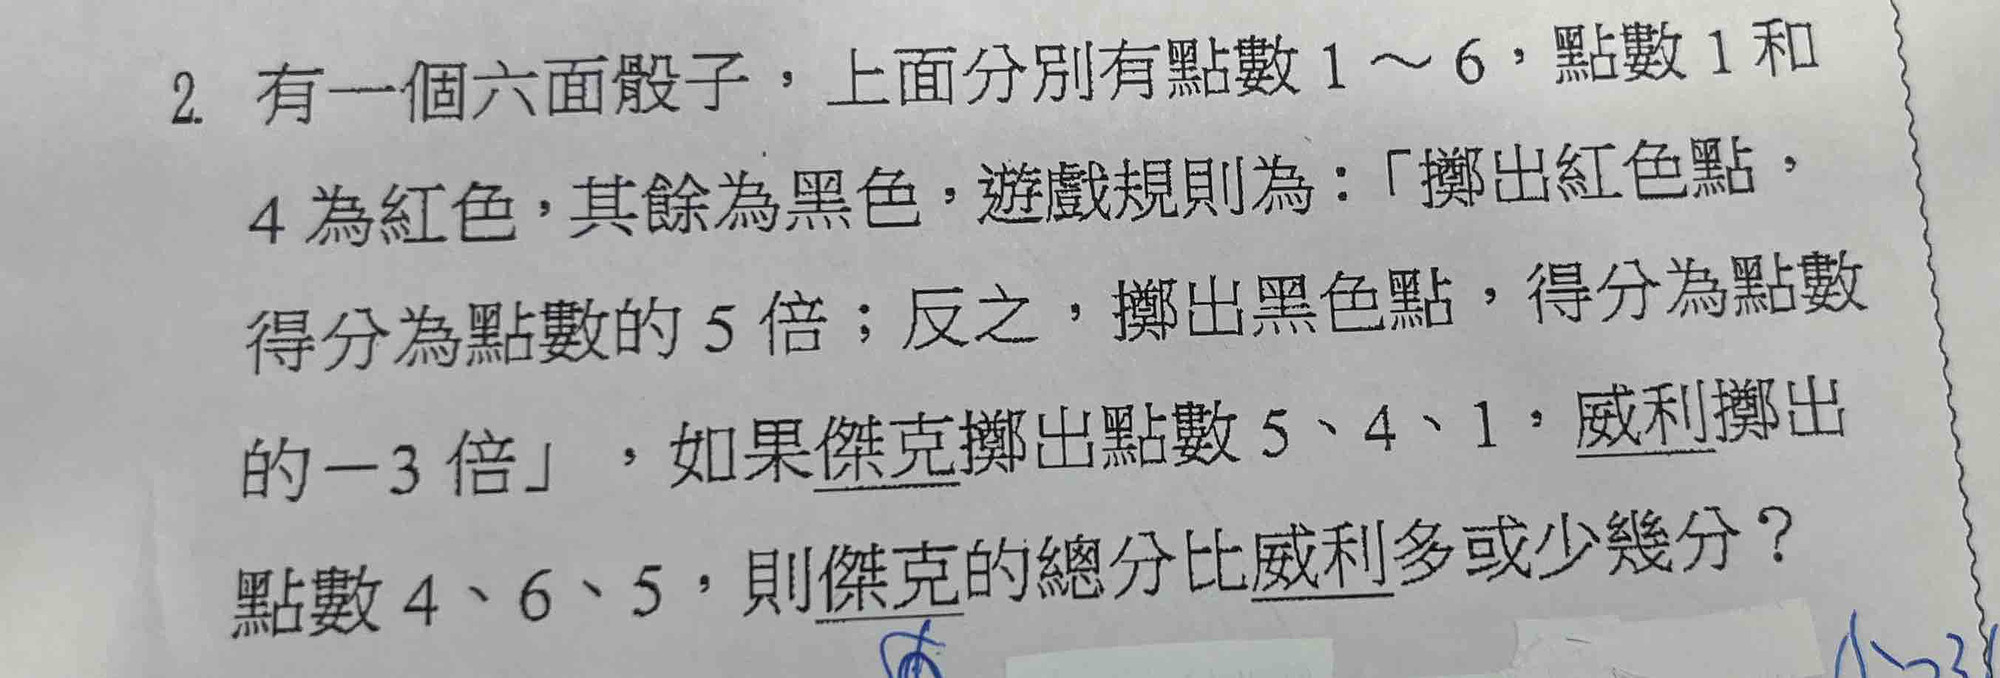 2. 有一個六面骰子，上面分別有點數1～6，點數1和
4為紅色，其餘為黑色，遊戲規則為：「擲出紅色點，
得分為點數的5倍；反之，擲出黑色點，得分為點數
的－3倍」，如果傑克擲出點數5、4、1，威利擲出
點數4、6、5，則傑克的總分比威利多或少幾分？